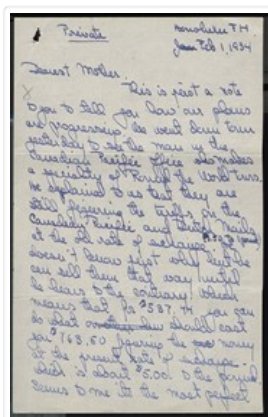 Private
Honolulu T H
Jan Feb 1, 1934
Dearest Mother.
This is just a note
to you to tell you how our plans
are progressing. We went down town
yesterday to see the man in the
Canadian Pacific Office who makes
a specialty of Round the World tours.
He explained to us that they are
still figuring the tariffs on the
Canadian Pacific and British
at the old rate of exchange
doesn't know just why but he
can sell them that way until
he hears to the contrary. Which
means that for $587.44 you can
do what should cost
you $763.60 figuring the money
at the present rate of exchange -
which is about $5.00 to the pound.
Seems to me it's the most perfect